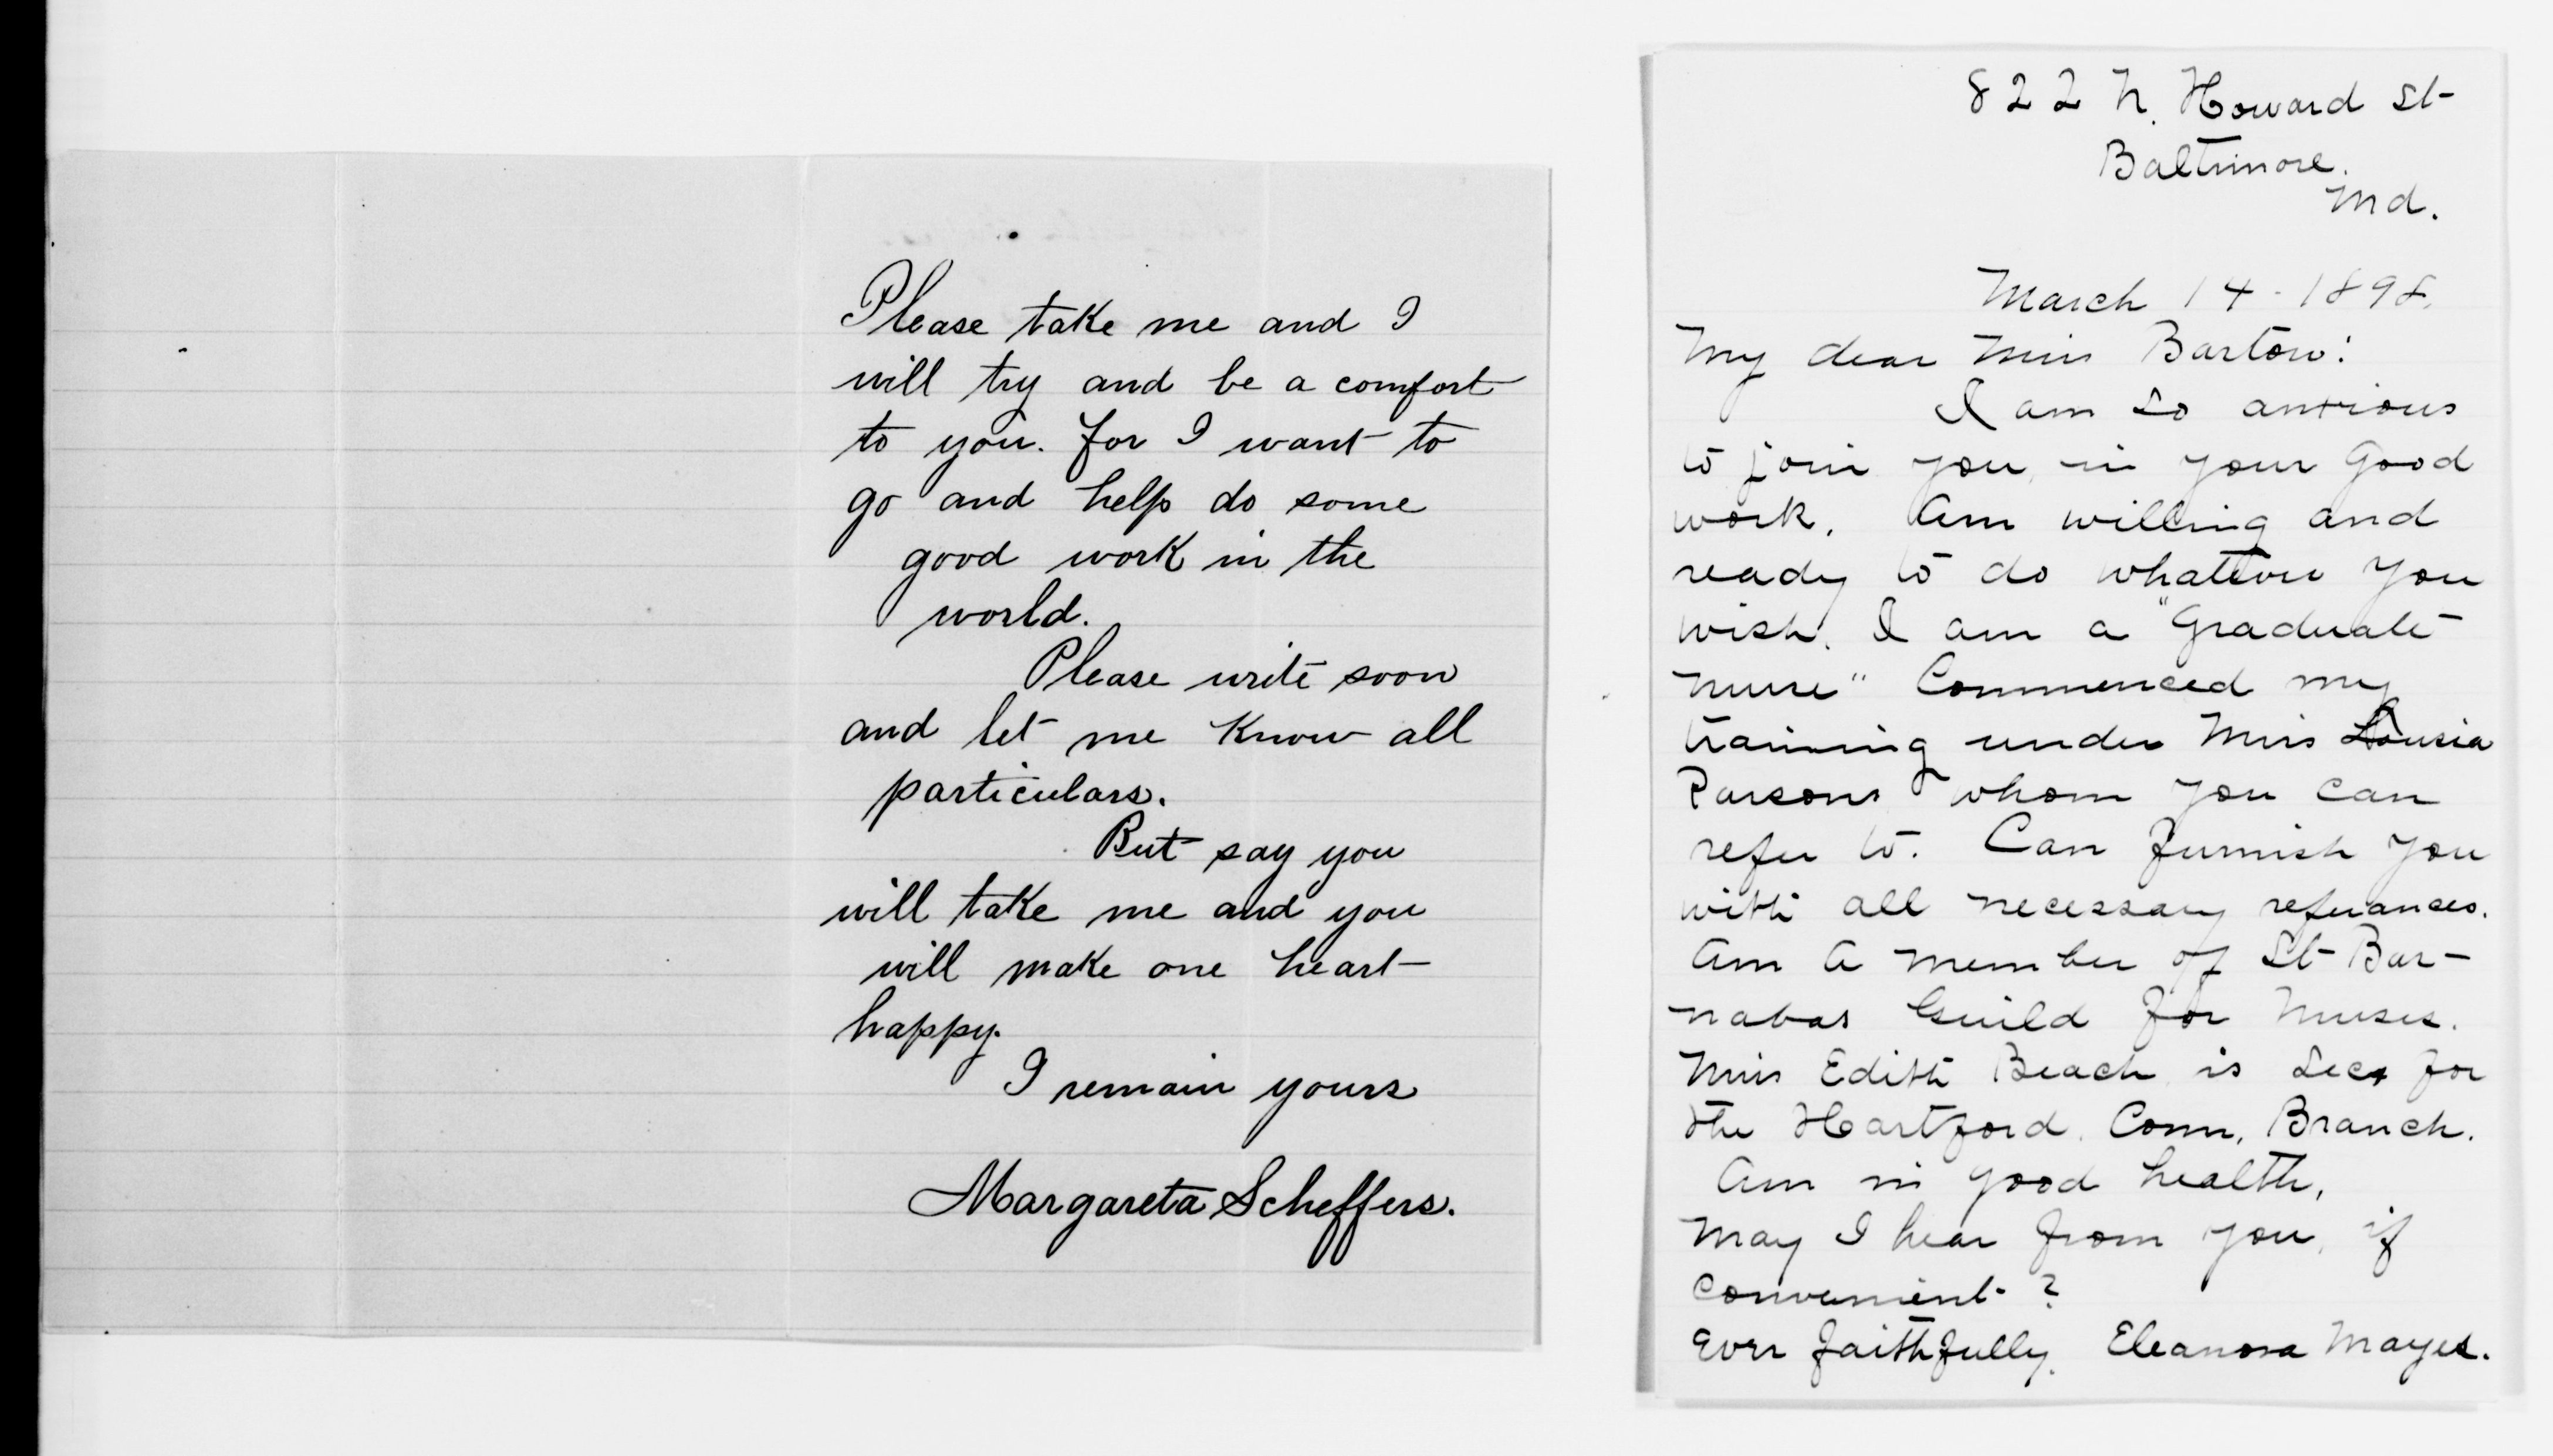 Please take me and I
will try and be a comfort
to you. for I want to
go and help do some
good work in the
world.
Please write soon
and let me know all
particulars.
But say you
will take me and you
will make one heart
happy.
I remain yours
Margareta Scheffers.
822 N. Howard St-
Baltimore.
Md.
March 14-1898.
My dear Miss Barton:
I am so anxious
to join you, in your good
work. Am willing and
ready to do whatever you
wish. I am a "Graduate
Nurse" Commenced my
training under Miss Lousia
Parsons whom you can
refer to. Can furnish you
with all necessary referances.
Am a member of St Bar-
nabas Guild for Nurses.
Miss Edith Beach is Sec. for
the Hartford, Conn, Branch.
Am in good health,
May I hear from you, if
convenient?
Ever faithfully, Eleanora Mayes.